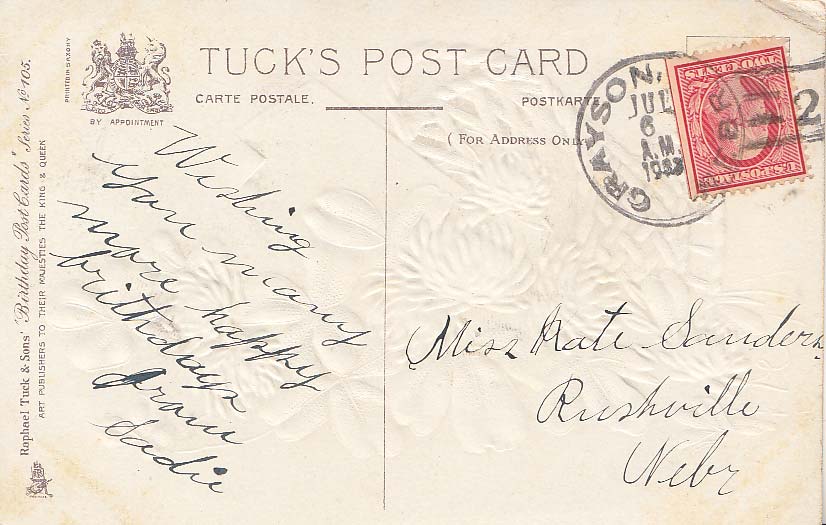 TUCK'S POST CARD
CARTE POSTALE.
POSTKARTE
(FOR ADDRESS ONLY
BY APPOINTMENT
PRINTED IN SAXONY
Raphael Tuck & Sons' "Birthday Post Cards" Series No 105.
ART PUBLISHERS TO THEIR MAJESTIES THE KING & QUEEN
GRAYSON,
JUL
6
A.M.
2
TWO CENTS
U.S. POSTAGE
Wishing
you many
more happy
birthdays
from
Sadie
Miss Kate Sanders
Rushville
Nebr